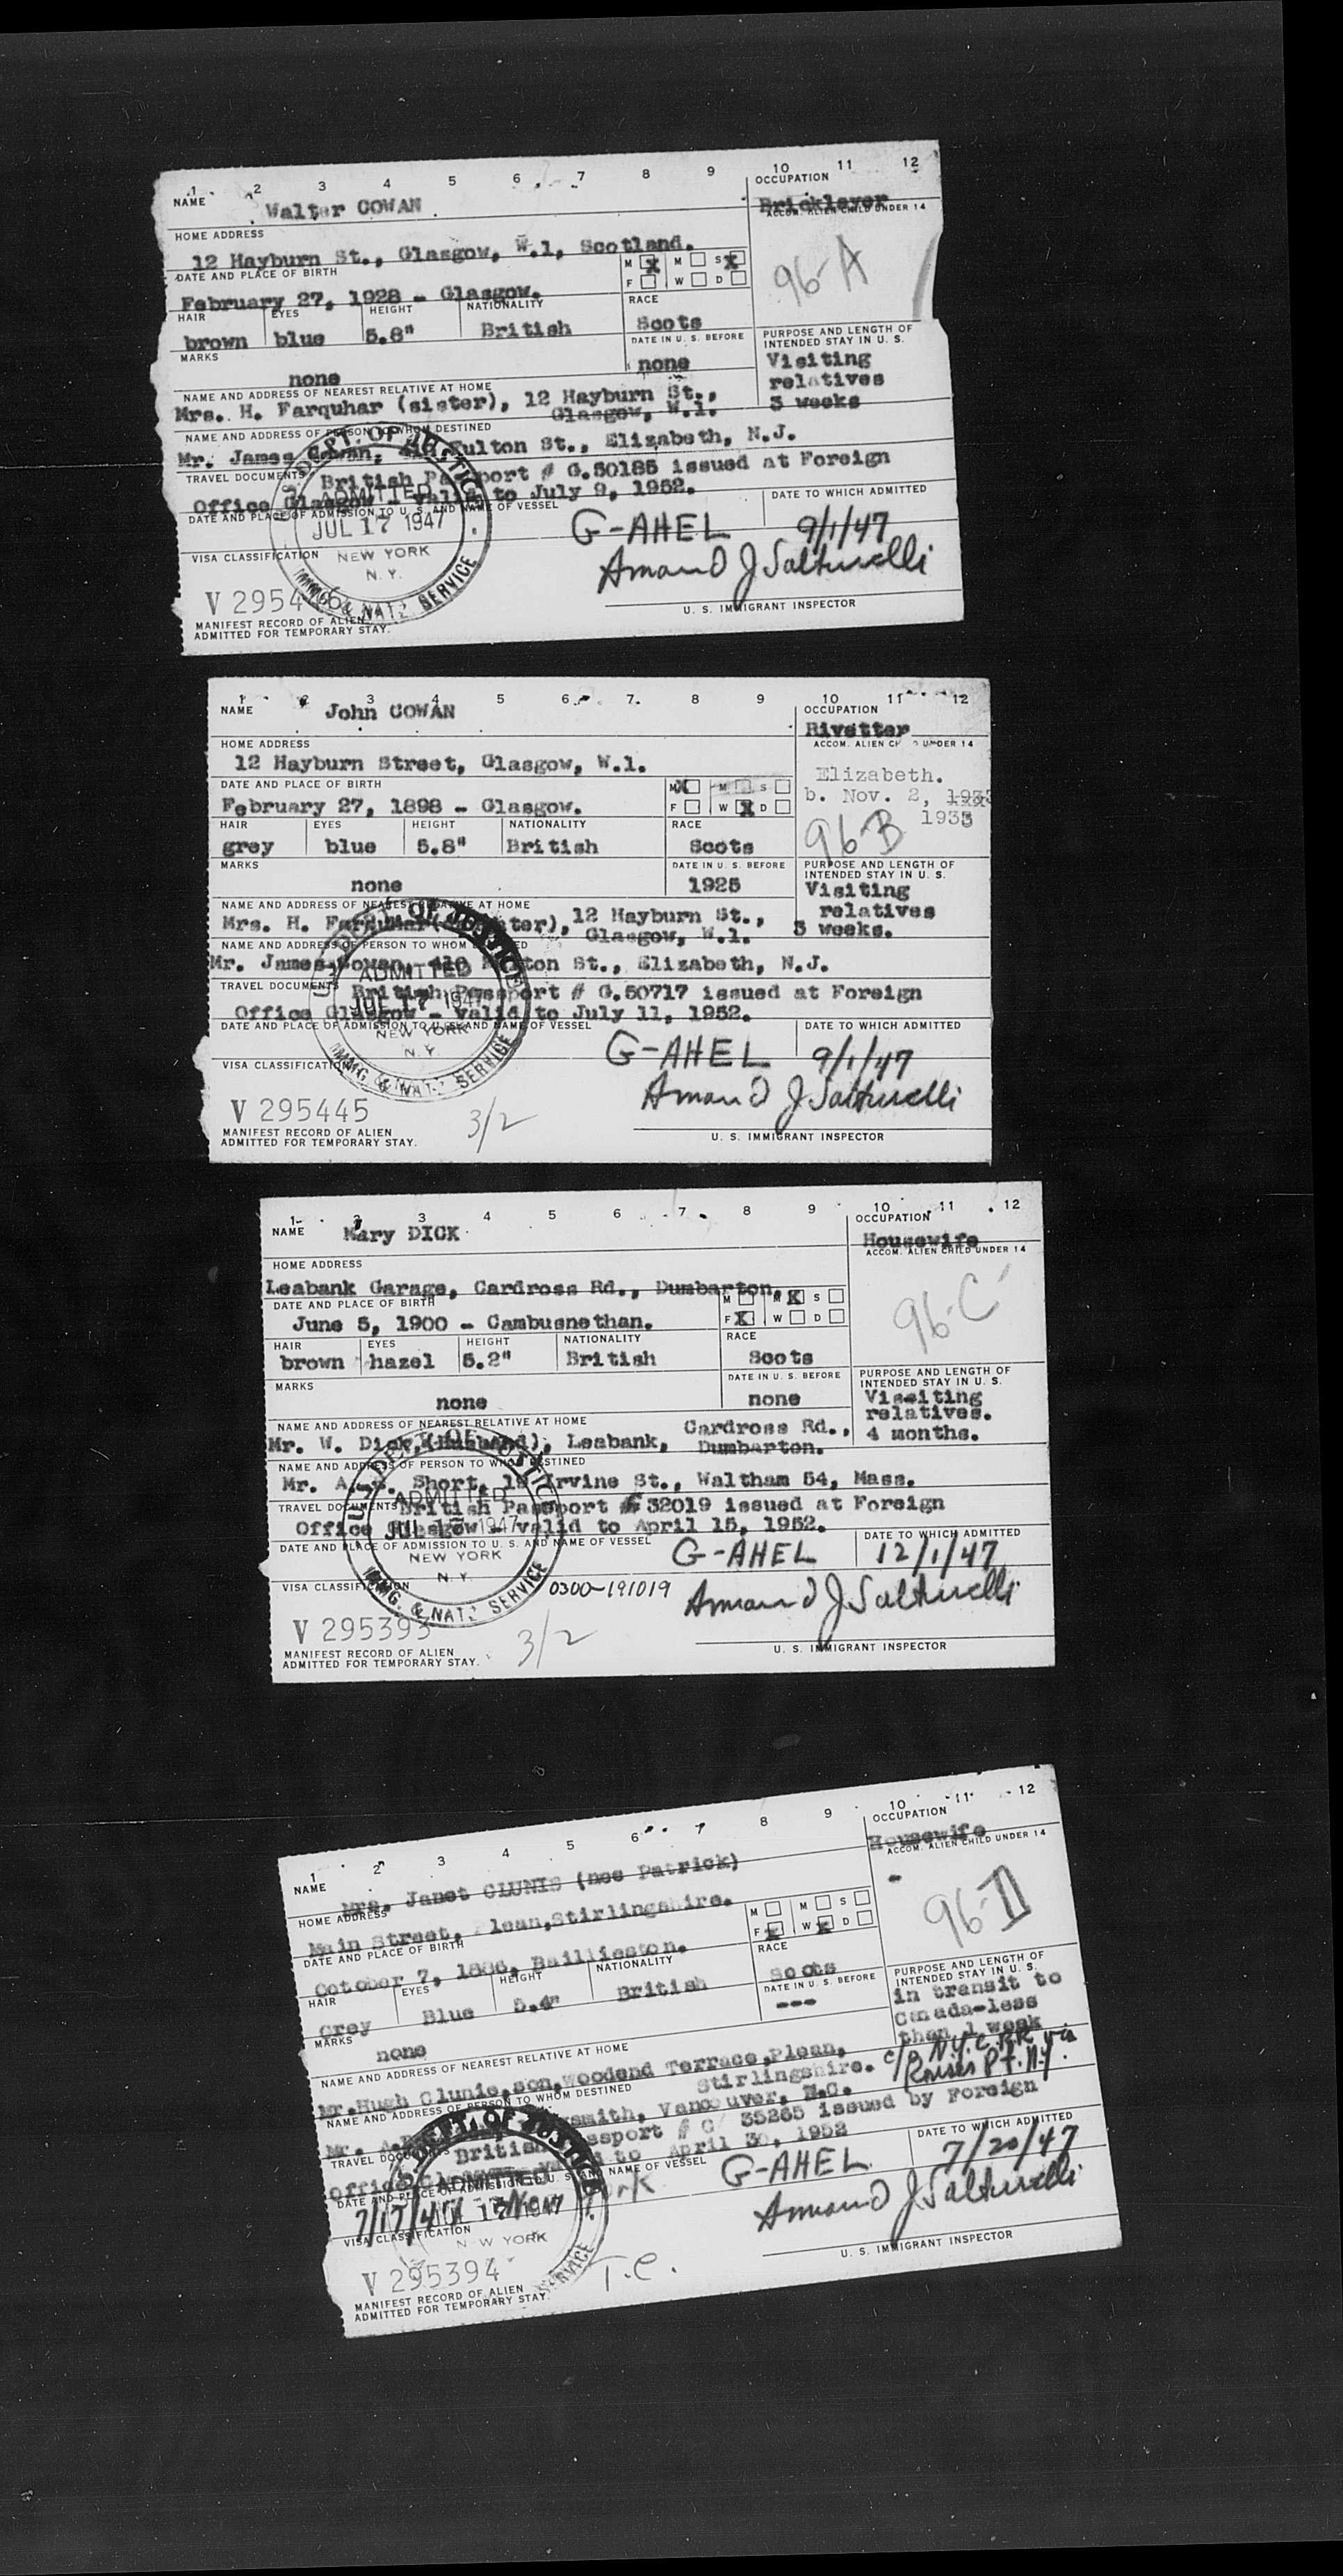 1 2 3 4 5 6 7 8 9 10 11 12
NAME Walter COWAN OCCUPATION Bricklayer
ACCOM. ALIEN CHILD UNDER 14
HOME ADDRESS
12 Hayburn St., Glasgow, W.1, Scotland.
96-A
DATE AND PLACE OF BIRTH M X M S X
February 27, 1928 - Glasgow. F W D
HAIR EYES HEIGHT NATIONALITY RACE
brown blue 5.8" British Scots
MARKS DATE IN U. S. BEFORE PURPOSE AND LENGTH OF INTENDED STAY IN U. S.
none none Visiting
relatives
3 weeks
NAME AND ADDRESS OF NEAREST RELATIVE AT HOME
Mrs. H. Farquhar (sister), 12 Hayburn St.,
Glasgow, W.1.
NAME AND ADDRESS OF PERSON TO WHOM DESTINED
Mr. James Cowan, 416 Fulton St., Elizabeth, N.J.
TRAVEL DOCUMENTS British Passport # G.50185 issued at Foreign
Office Glasgow - valid to July 9, 1952.
DATE AND PLACE OF ADMISSION TO U. S. AND NAME OF VESSEL DATE TO WHICH ADMITTED
G-AHEL 9/1/47
U.S. DEPT. OF JUSTICE
ADMITTED
JUL 17 1947
NEW YORK
N. Y.
IMMG. & NATZ SERVICE
VISA CLASSIFICATION
Armand J Salturelli
V 2954
U. S. IMMIGRANT INSPECTOR
MANIFEST RECORD OF ALIEN
ADMITTED FOR TEMPORARY STAY.
1 2 3 4 5 6 7 8 9 10 11 12
NAME John COWAN OCCUPATION
Rivetter
HOME ADDRESS ACCOM. ALIEN CHILD UNDER 14
12 Hayburn Street, Glasgow, W.1. Elizabeth.
DATE AND PLACE OF BIRTH M X M S b. Nov. 2, 1933
February 27, 1898 - Glasgow. F W X D 1933
96-B
HAIR EYES HEIGHT NATIONALITY RACE
grey blue 5.8" British Scots
MARKS DATE IN U. S. BEFORE PURPOSE AND LENGTH OF INTENDED STAY IN U. S.
none 1925 Visiting
relatives
3 weeks.
NAME AND ADDRESS OF NEAREST RELATIVE AT HOME
Mrs. H. Farquhar (daughter), 12 Hayburn St.,
Glasgow, W.1.
NAME AND ADDRESS OF PERSON TO WHOM DESTINED
Mr. James Cowan, 416 Fulton St., Elizabeth, N.J.
TRAVEL DOCUMENTS British Passport # G.50717 issued at Foreign
Office Glasgow - valid to July 11, 1952.
DATE AND PLACE OF ADMISSION TO U. S. AND NAME OF VESSEL DATE TO WHICH ADMITTED
G-AHEL 9/1/47
U.S. DEPT. OF JUSTICE
ADMITTED
JUL 17 1947
NEW YORK
N. Y.
IMMG. & NATZ SERVICE
VISA CLASSIFICATION
Armand J Salturelli
V 295445 3/2
U. S. IMMIGRANT INSPECTOR
MANIFEST RECORD OF ALIEN
ADMITTED FOR TEMPORARY STAY.
1 2 3 4 5 6 7 8 9 10 11 12
NAME Mary DICK OCCUPATION
Housewife
HOME ADDRESS ACCOM. ALIEN CHILD UNDER 14
Leabank Garage, Cardross Rd., Dumbarton.
96-C
DATE AND PLACE OF BIRTH M M X S
June 5, 1900 - Cambusnethan. F X W D
HAIR EYES HEIGHT NATIONALITY RACE
brown hazel 5.2" British Scots
MARKS DATE IN U. S. BEFORE PURPOSE AND LENGTH OF INTENDED STAY IN U. S.
none none Visiting
relatives.
4 months.
NAME AND ADDRESS OF NEAREST RELATIVE AT HOME
Mr. W. Dick, (Husband), Leabank, Cardross Rd.,
Dumbarton.
NAME AND ADDRESS OF PERSON TO WHOM DESTINED
Mr. A. Short, Irvine St., Waltham 54, Mass.
TRAVEL DOCUMENTS British Passport # 32019 issued at Foreign
Office Glasgow - valid to April 15, 1952.
DATE AND PLACE OF ADMISSION TO U. S. AND NAME OF VESSEL DATE TO WHICH ADMITTED
G-AHEL 12/1/47
U.S. DEPT. OF JUSTICE
ADMITTED
JUL 17 1947
NEW YORK
N. Y.
IMMG. & NATZ SERVICE
VISA CLASSIFICATION 0300-191019
Armand J Salturelli
V 295393 3/2
U. S. IMMIGRANT INSPECTOR
MANIFEST RECORD OF ALIEN
ADMITTED FOR TEMPORARY STAY.
1 2 3 4 5 6 7 8 9 10 11 12
NAME Mrs. Janet CLUNIE (nee Patrick) OCCUPATION
Housewife
HOME ADDRESS ACCOM. ALIEN CHILD UNDER 14
Main Street, Plean, Stirlingshire.
96-D
DATE AND PLACE OF BIRTH M M S
October 7, 1886, Baillieston. F X W X D
HAIR EYES HEIGHT NATIONALITY RACE
Grey Blue 5.4" British Scots
MARKS DATE IN U. S. BEFORE PURPOSE AND LENGTH OF INTENDED STAY IN U. S.
none --- in transit to
Canada-less
than 1 week
c/o N.Y.C. RR via
Rouses Pt. N.Y.
NAME AND ADDRESS OF NEAREST RELATIVE AT HOME
Mr. Hugh Clunie, son, Woodend Terrace, Plean,
Stirlingshire.
NAME AND ADDRESS OF PERSON TO WHOM DESTINED
Mr. A. Vancouver, B.C.
TRAVEL DOCUMENTS British Passport # G 35265 issued by Foreign
Office April 30, 1952
DATE AND PLACE OF ADMISSION TO U. S. AND NAME OF VESSEL DATE TO WHICH ADMITTED
7/17/47 New York G-AHEL 7/20/47
DEPT. OF JUSTICE
ADMITTED
JUL 17 1947
NEW YORK
SERVICE
VISA CLASSIFICATION
Armand J Salturelli
V 295394 T.C.
U. S. IMMIGRANT INSPECTOR
MANIFEST RECORD OF ALIEN
ADMITTED FOR TEMPORARY STAY.